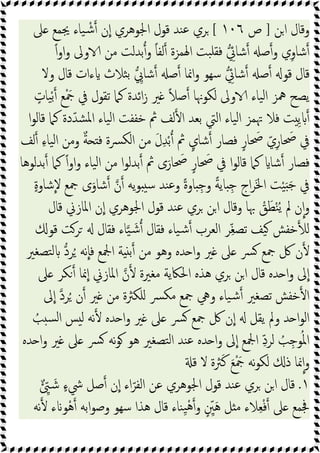 وقال ابن [ ص ١٠٦ ] بري عند قول الجوهري إن أَشْياء يجمع على
أَشاوِي وأَصله أَشائِيُّ فقلبت الهمزة أَلفاً وأُبدلت من الاولى واواً
قال قوله أَصله أَشائِيُّ سهو وانما أَصله أَشايِيُّ بثلاث ياءات قال ولا
يصح همز الياء الاولى لكونها أَصلاً غير زائدة كما تقول في جَمْع أَبْياتٍ
أَبايِيت فلا تهمز الياء التي بعد الأَلف ثم خففت الياء المشدّدة كما قالوا
في صَحارِيّ صَحارٍ فصار أَشايٍ ثم أُبْدِلَ من الكسرة فتحةٌ ومن الياءِ أَلف
فصار أَشايا كما قالوا في صَحارٍ صَحارَى ثم أَبدلوا من الياء واواً كما أَبدلوها
في جَبَيْت الخَراج جِبايةً وجِباوةً وعند سيبويه أَنَّ أَشاوَى جمع لإِشاوةٍ
وإِن لم يُنْطَقْ بها وقال ابن بري عند قول الجوهري إن المازني قال
للأَخفش كيف تصغّر العرب أَشياء فقال أُشَيَّاء فقال له تركت قولك
لأَن كل جمع كسر على غير واحده وهو من أَبنية الجمع فإنه يُردُّ بالتصغير
إلى واحده قال ابن بري هذه الحكاية مغيرة لأَنَّ المازني إنما أَنكر على
الأَخفش تصغير أَشياء وهي جمع مكسر للكثرة من غير أَن يُردَّ إلى
الواحد ولم يقل له إن كل جمع كسر على غير واحده لأَنه ليس السببُ
المُوجِبُ لردّ الجمع إلى واحده عند التصغير هو كونه كسر على غير واحده
وانما ذلك لكونه جَمْعَ كَثرة لا قلة
١. قال ابن بري عند قول الجوهري عن الفرّاء إن أَصل شيءٍ شَيِّئٌ
فجمع على أَفْعِلاء مثل هَيِّنٍ وأَهْيِناء قال هذا سهو وصوابه أَهْوناء لأَنه